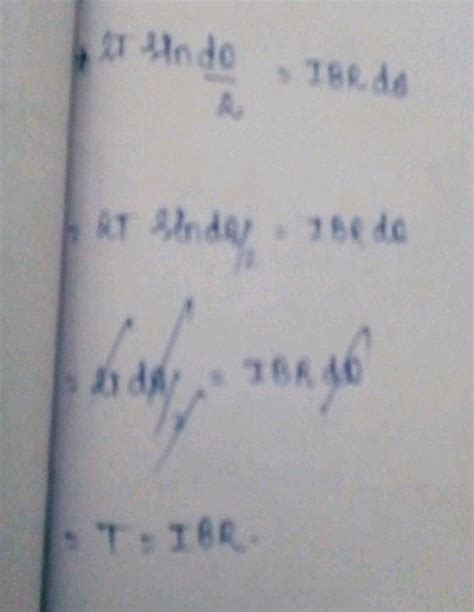 2T sin dθ/2 = IBR dθ
= 2T sin dθ/2 = IBR dθ
= 2T dθ/2 = IBR dθ
= T = IBR.